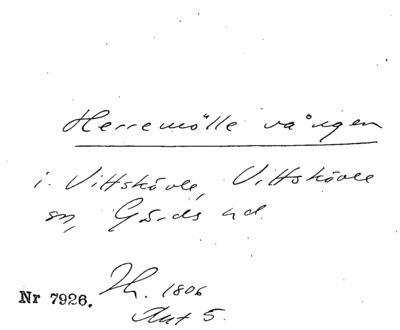 Herremölle vången
i Vittskövle, Vittskövle
sn, Gärds hd.
Nr 7926. Th. 1806
Akt 5.